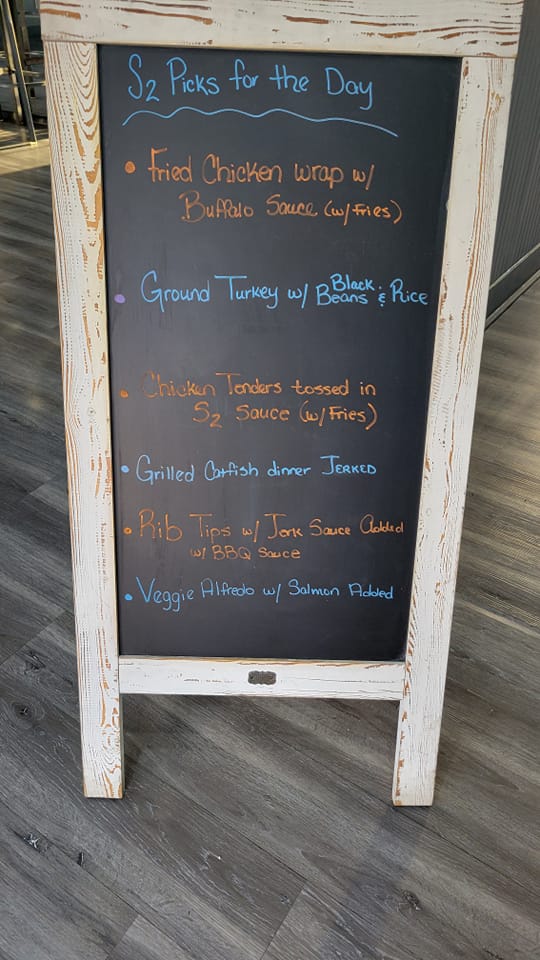 S2 Picks for the Day
• Fried Chicken wrap w/
Buffalo Sauce (w/fries)
• Ground Turkey w/ Black Beans & Rice
• Chicken Tenders tossed in
S2 Sauce (w/Fries)
• Grilled Catfish dinner JERKED
• Rib Tips w/ Jerk Sauce Added
w/ BBQ Sauce
• Veggie Alfredo w/ Salmon Added